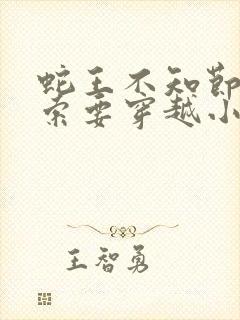 蛇王不知节
索要穿越小
王智勇